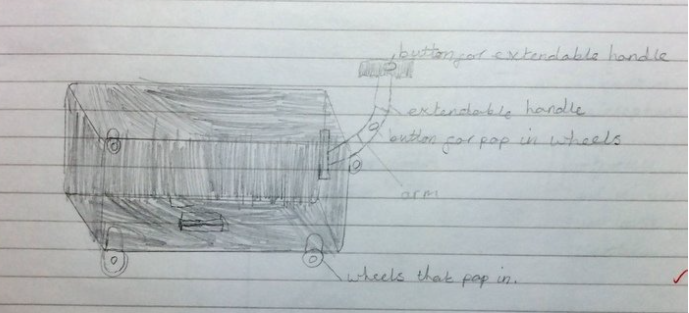 button for extendable handle
extendable handle
button for pop in wheels
arm
wheels that pop in.